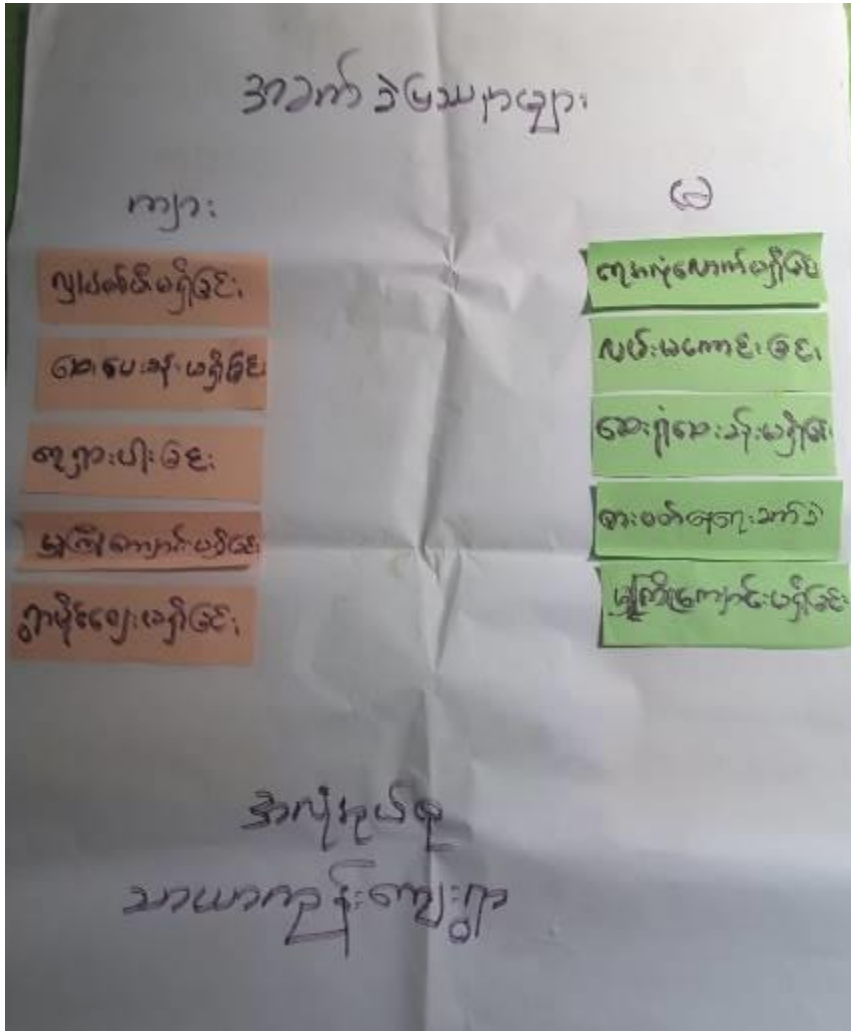 အခက်ခဲပြဿနာများ
ကျား
မ
လျှပ်စစ်မီးမရှိခြင်း
ဆေးပေးခန်းမရှိခြင်း
ရေရှားပါးခြင်း
မူကြိုကျောင်းမရှိခြင်း
ရွာပိုင်ဈေးမရှိခြင်း
ရေအလုံလောက်မရှိခြင်း
လမ်းမကောင်းခြင်း
ဆေးရုံဆေးခန်းမရှိခြင်း
စားဝတ်နေရေးခက်ခဲ
မူကြိုကျောင်းမရှိခြင်း
သာယာကုန်းကျေးရွာ